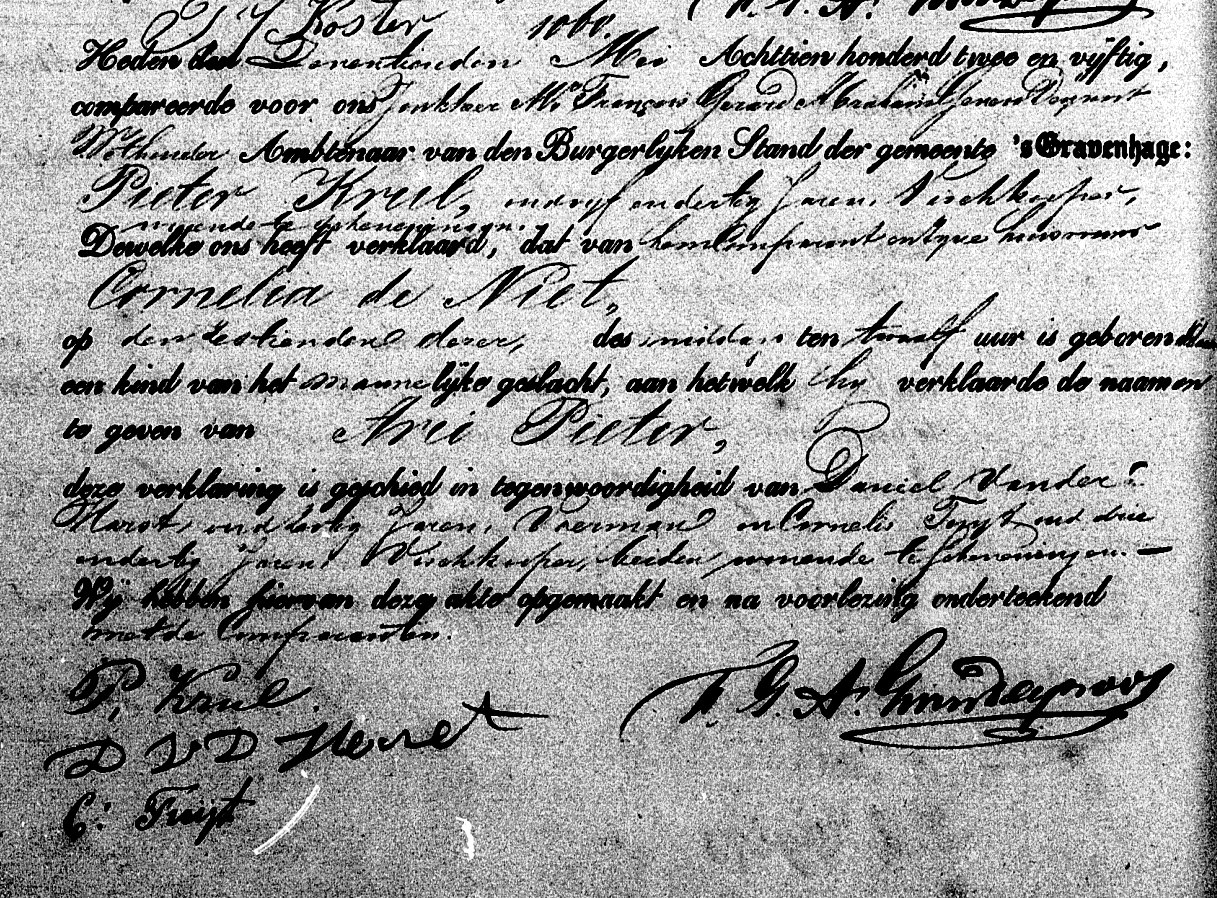 Koster 1060.
Heden den Zeventienden Mei Achttien honderd twee en vijftig,
compareerde voor ons Jonkheer Mr. François Gerard Abraham Gevers Deynoot
Wethouder Ambtenaar van den Burgerlijken Stand der gemeente 's Gravenhage:
Pieter Krul, oud vijf en dertig Jaren, Vischkooper,
wonende te Scheveningen.
Dewelke ons heeft verklaard, dat van hem Comparant en zijne huisvrouw
Cornelia de Niet,
op den zestienden dezer, des middags ten twaalf uur is geboren
een kind van het mannelijke geslacht, aan hetwelk hij verklaarde de naamen
te geven van Arie Pieter,
deze verklaring is geschied in tegenwoordigheid van Daniel Van der
Harst, oud dertig Jaren, Voerman en Cornelis Tuijt oud drie
en dertig Jaren Vischkooper, beiden wonende te Scheveningen. —
Wij hebben hiervan deze akte opgemaakt en na voorlezing onderteekend
met de Comparanten.
P. Krul. F. G. A. Gevers Deynoot
D V D Herst
C. Tuijt